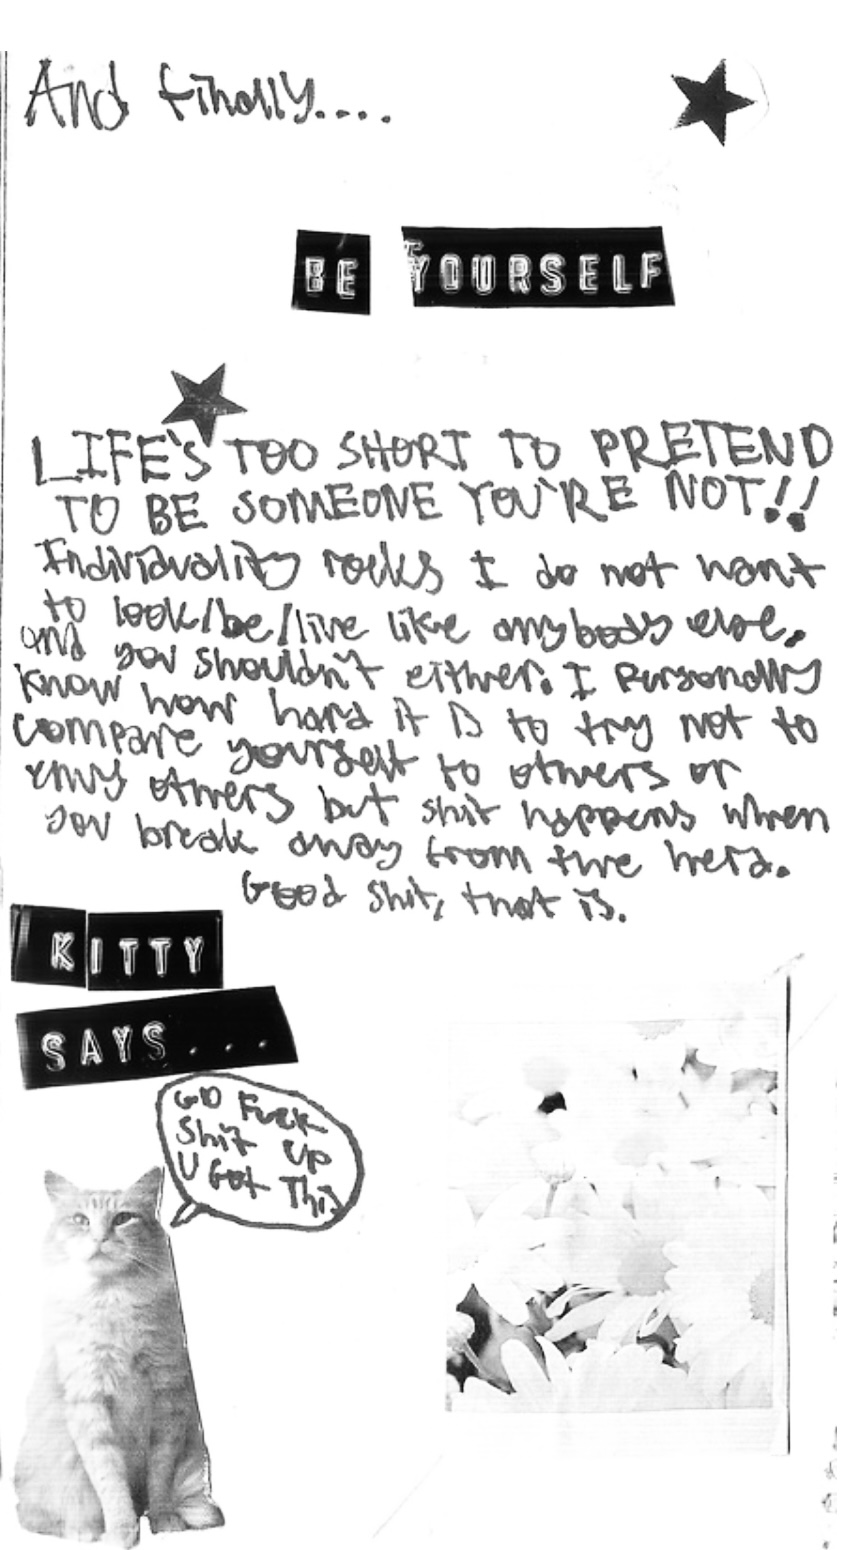 And finally....
BE YOURSELF
LIFE'S TOO SHORT TO PRETEND
TO BE SOMEONE YOU'RE NOT!!
Individuality rocks I do not want
to look/be/live like anybody else,
and you shouldn't either. I personally
know how hard it is to try not to
compare yourself to others or
envy others but shit happens when
you break away from the herd.
Good shit, that is.
KITTY
SAYS...
GO FUCK
Shit UP
U Got This